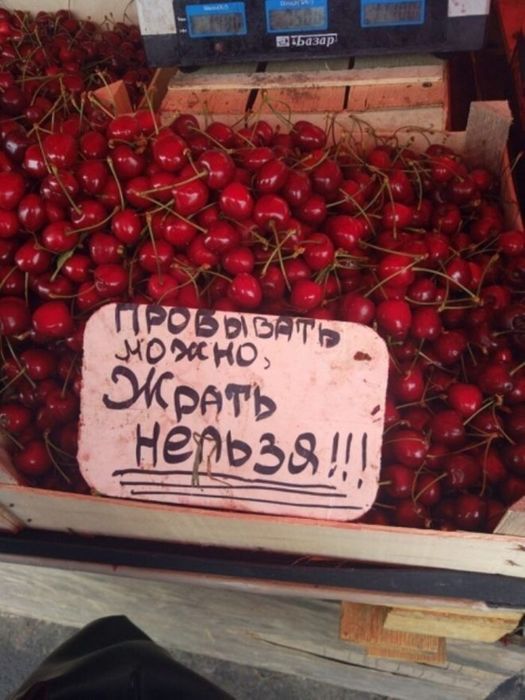 Базар
ПРОБЫВАТЬ
МОЖНО,
Жрать
нельзя!!!